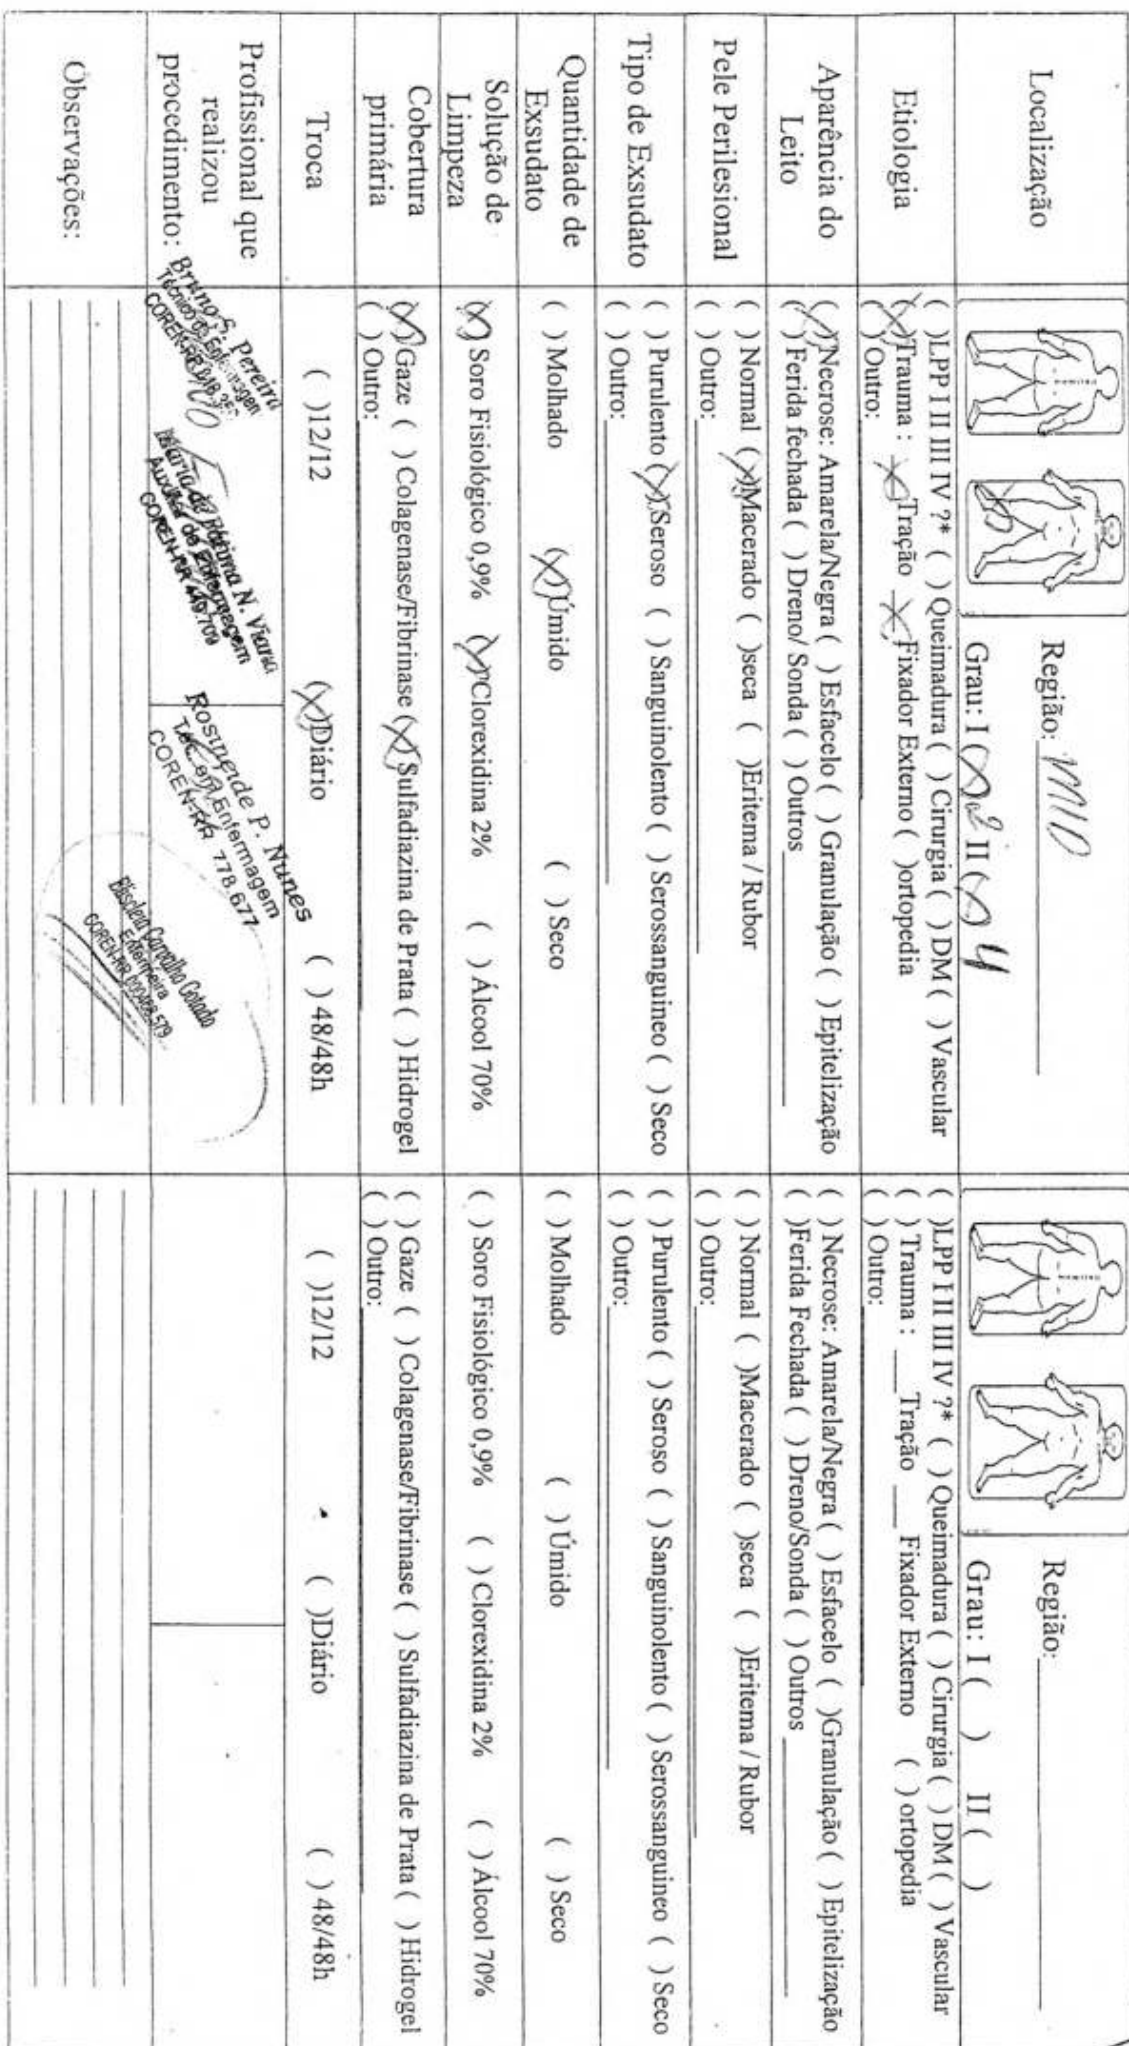 Localização
Região: MID
Grau: I (X) 2 II (X) 4
Região:
Grau: I ( ) II ( )
Etiologia
( )LPP I II III IV ?* ( ) Queimadura ( ) Cirurgia ( ) DM ( ) Vascular
(X)Trauma : X Tração X Fixador Externo ( )ortopedia
( ) Outro:
( )LPP I II III IV ?* ( ) Queimadura ( ) Cirurgia ( ) DM ( ) Vascular
( ) Trauma : ___Tração ___ Fixador Externo ( ) ortopedia
( ) Outro:
Aparência do
Leito
(X)Necrose: Amarela/Negra ( ) Esfacelo ( ) Granulação ( ) Epitelização
( ) Ferida fechada ( ) Dreno/ Sonda ( ) Outros
( ) Necrose: Amarela/Negra ( ) Esfacelo ( )Granulação ( ) Epitelização
( )Ferida Fechada ( ) Dreno/Sonda ( ) Outros
Pele Perilesional
( ) Normal (X)Macerado ( )seca ( )Eritema / Rubor
( ) Outro:
( ) Normal ( )Macerado ( )seca ( )Eritema / Rubor
( ) Outro:
Tipo de Exsudato
( ) Purulento (X)Seroso ( ) Sanguinolento ( ) Serossanguineo ( ) Seco
( ) Outro:
( ) Purulento ( ) Seroso ( ) Sanguinolento ( ) Serossanguineo ( ) Seco
( ) Outro:
Quantidade de
Exsudato
( ) Molhado (X)Úmido ( ) Seco
( ) Molhado ( ) Úmido ( ) Seco
Solução de
Limpeza
(X) Soro Fisiológico 0,9% (X)Clorexidina 2% ( ) Álcool 70%
( ) Soro Fisiológico 0,9% ( ) Clorexidina 2% ( ) Álcool 70%
Cobertura
primária
(X) Gaze ( ) Colagenase/Fibrinase (X) Sulfadiazina de Prata ( ) Hidrogel
( ) Outro:
( ) Gaze ( ) Colagenase/Fibrinase ( ) Sulfadiazina de Prata ( ) Hidrogel
( ) Outro:
Troca
( )12/12 (X)Diário ( ) 48/48h
( )12/12 ( )Diário ( ) 48/48h
Profissional que
realizou
procedimento:
Bruno S. Pereira
Técnico de Enfermagem
COREN-RR
Maria de Fátima N. Viana
Auxiliar de Enfermagem
COREN-RR 449.709
Rosineide P. Nunes
Téc. em Enfermagem
COREN-RR 778.677
Carvalho
Enfermeira
COREN-RR
Observações: